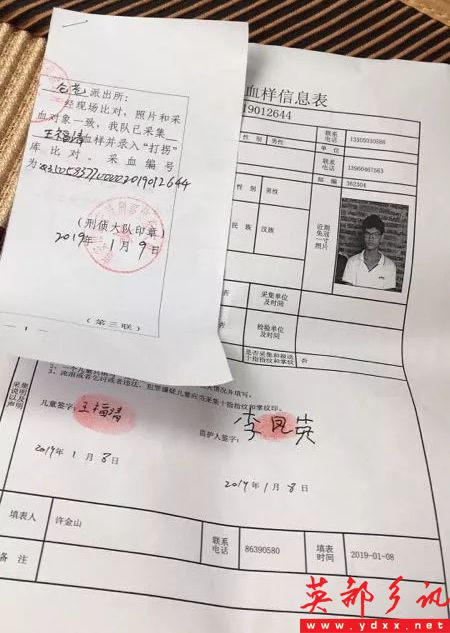 派出所：
经现场比对，照片和采
血对象一致，我队已采集
王福清血样并录入“打拐”
库比对。采血编号
(刑侦大队印章)
2019年1月9日
(第三联)
血样信息表
19012644
性别 男性
联系电话
单位
联系电话 13960467583
性别 男性
邮编 362304
民族 汉族
近期免冠一寸照片
否
采集单位及时间
否
检验单位及时间
否
儿童签字：王福清
监护人签字：李凤英
2019年1月8日
2019年1月8日
填表人 许金山 联系电话 86390580 填表时间 2019-01-08
备注
英都乡讯
www.ydxx.net